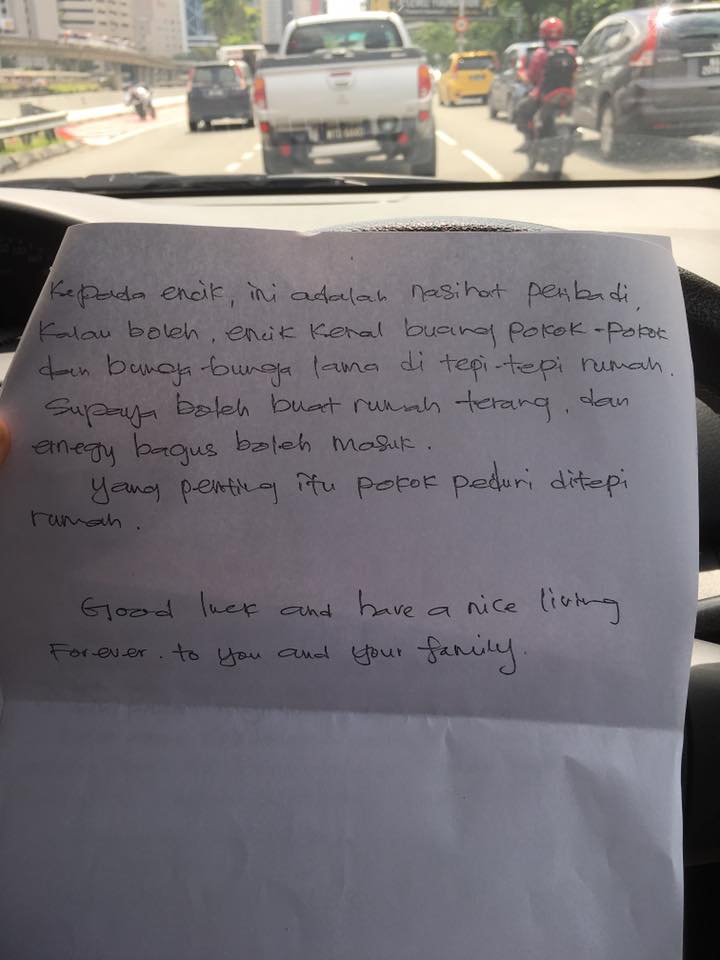 Kepada encik, ini adalah nasihat peribadi,
Kalau boleh, encik kenal buang pokok-pokok
dan bunga-bunga lama di tepi-tepi rumah.
Supaya boleh buat rumah terang, dan
ernegy bagus boleh masuk.
Yang penting itu pokok peduri ditepi
rumah.
Good luck and have a nice living
Forever. to you and your family.